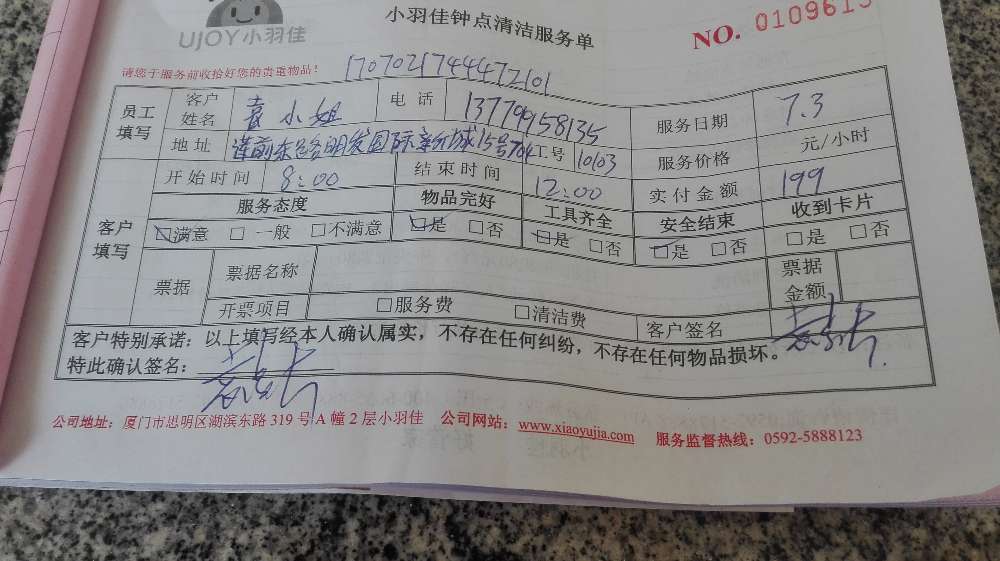 小羽佳钟点清洁服务单
UJOY小羽佳
NO. 0109615
请您于服务前收拾好您的贵重物品！ 1707021744472101
员工填写 客户姓名 袁小姐 电话 13779958135 服务日期 7.3
地址 莲前东路明发国际新城15号704 工号 10103 服务价格 元/小时
开始时间 8:00 结束时间 12:00 实付金额 199
客户填写 服务态度 物品完好 工具齐全 安全结束 收到卡片
☑满意 □一般 □不满意 ☑是 □否 ☑是 □否 ☑是 □否 □是 □否
票据 票据名称 票据金额
开票项目 □服务费 □清洁费 客户签名
客户特别承诺：以上填写经本人确认属实，不存在任何纠纷，不存在任何物品损坏。
特此确认签名：
公司地址：厦门市思明区湖滨东路 319 号 A 幢 2 层小羽佳 公司网站：www.xiaoyujia.com 服务监督热线：0592-5888123